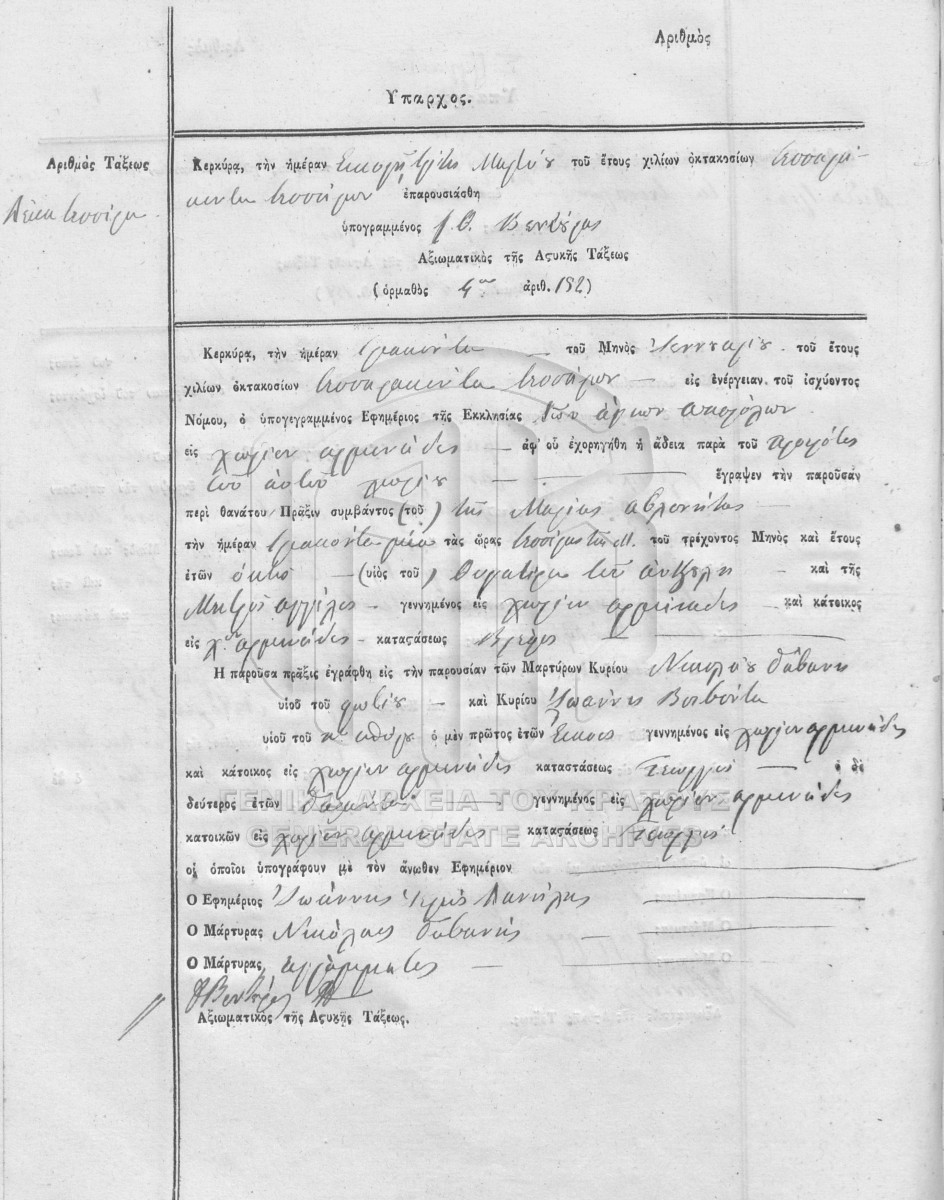 Ἀριθμὸς
Ὕπαρχος.
Ἀριθμὸς Τάξεως
Δέκα τεσσάρα
Κερκύρα, τὴν ἡμέραν Εικοστή τρίτη Μαρτίου τοῦ ἔτους χιλίων ὀκτακοσίων τεσσαρα-
κοντα τεσσάρων ἐπαρουσιάσθη
ὑπογραμμένος Βεντούρας
Ἀξιωματικὸς τῆς Ἀςυκῆς Τάξεως
(ὁρμαθὸς 4ον ἀριθ. 192)
Κερκύρα, τὴν ἡμέραν τριακοντα τοῦ Μηνὸς Ιεννουαρίου τοῦ ἔτους
χιλίων ὀκτακοσίων τεσσαρακοντα τεσσάρων εἰς ἐνέργειαν τοῦ ἰσχύοντος
Νόμου, ὁ ὑπογεγραμμένος Ἐφημέριος τῆς Ἐκκλησίας Των άγιων αποστόλων
εἰς χωρίον αρμενάδες ἀφ' οὗ ἐχορηγήθη ἡ ἄδεια παρὰ τοῦ προεστότες
τοῦ αὐτοῦ χωρίου ἔγραψεν τὴν παροῦσαν
περὶ θανάτου Πρᾶξιν συμβάντος (τοῦ) της Μαρίας αβλονήτες
τὴν ἡμέραν τριακόντα μία τὰς ὥρας τεσσερες τῆς Μ. τοῦ τρέχοντος Μηνὸς καὶ ἔτους
ἐτῶν ὀκτὸ (υἱὸς τοῦ) Θυγατέρα τοῦ καὶ τῆς
Μητρὸς αγγέλας γεννημένος εἰς χωρίον αρμενάδες καὶ κάτοικος
εἰς χ: αρμενάδες καταςάσεως Βρέφος
Ἡ παροῦσα πρᾶξις ἐγράφθη εἰς τὴν παρουσίαν τῶν Μαρτύρων Κυρίου Νικολάου δαβανη
υἱοῦ τοῦ φωτίου καὶ Κυρίου Ἰωάννης Βοϊβόντα
υἱοῦ τοῦ ὁ μὲν πρῶτος ἐτῶν γεννημένος εἰς χωρίον αρμενάδες
καὶ κάτοικος εἰς χωρίον αρμενάδες καταστάσεως Γεωργός ὁ δὲ
δεύτερος ἐτῶν γεννημένος εἰς χωρίον αρμενάδες
κατοικῶν εἰς χωρίον αρμενάδες καταςάσεως Γεωργός
οἱ ὁποῖοι ὑπογράφουν μὲ τὸν ἄνωθεν Ἐφημέριον
Ὁ Ἐφημέριος Ἰωάννης Ἱερεὺς
Ὁ Μάρτυρας Νικόλαος δαβανής
Ὁ Μάρτυρας αγράμματος
Βεντούρας
Ἀξιωματικὸς τῆς Ἀςυκῆς Τάξεως.
ΓΕΝΙΚΑ ΑΡΧΕΙΑ ΤΟΥ ΚΡΑΤΟΥΣ
GENERAL STATE ARCHIVES